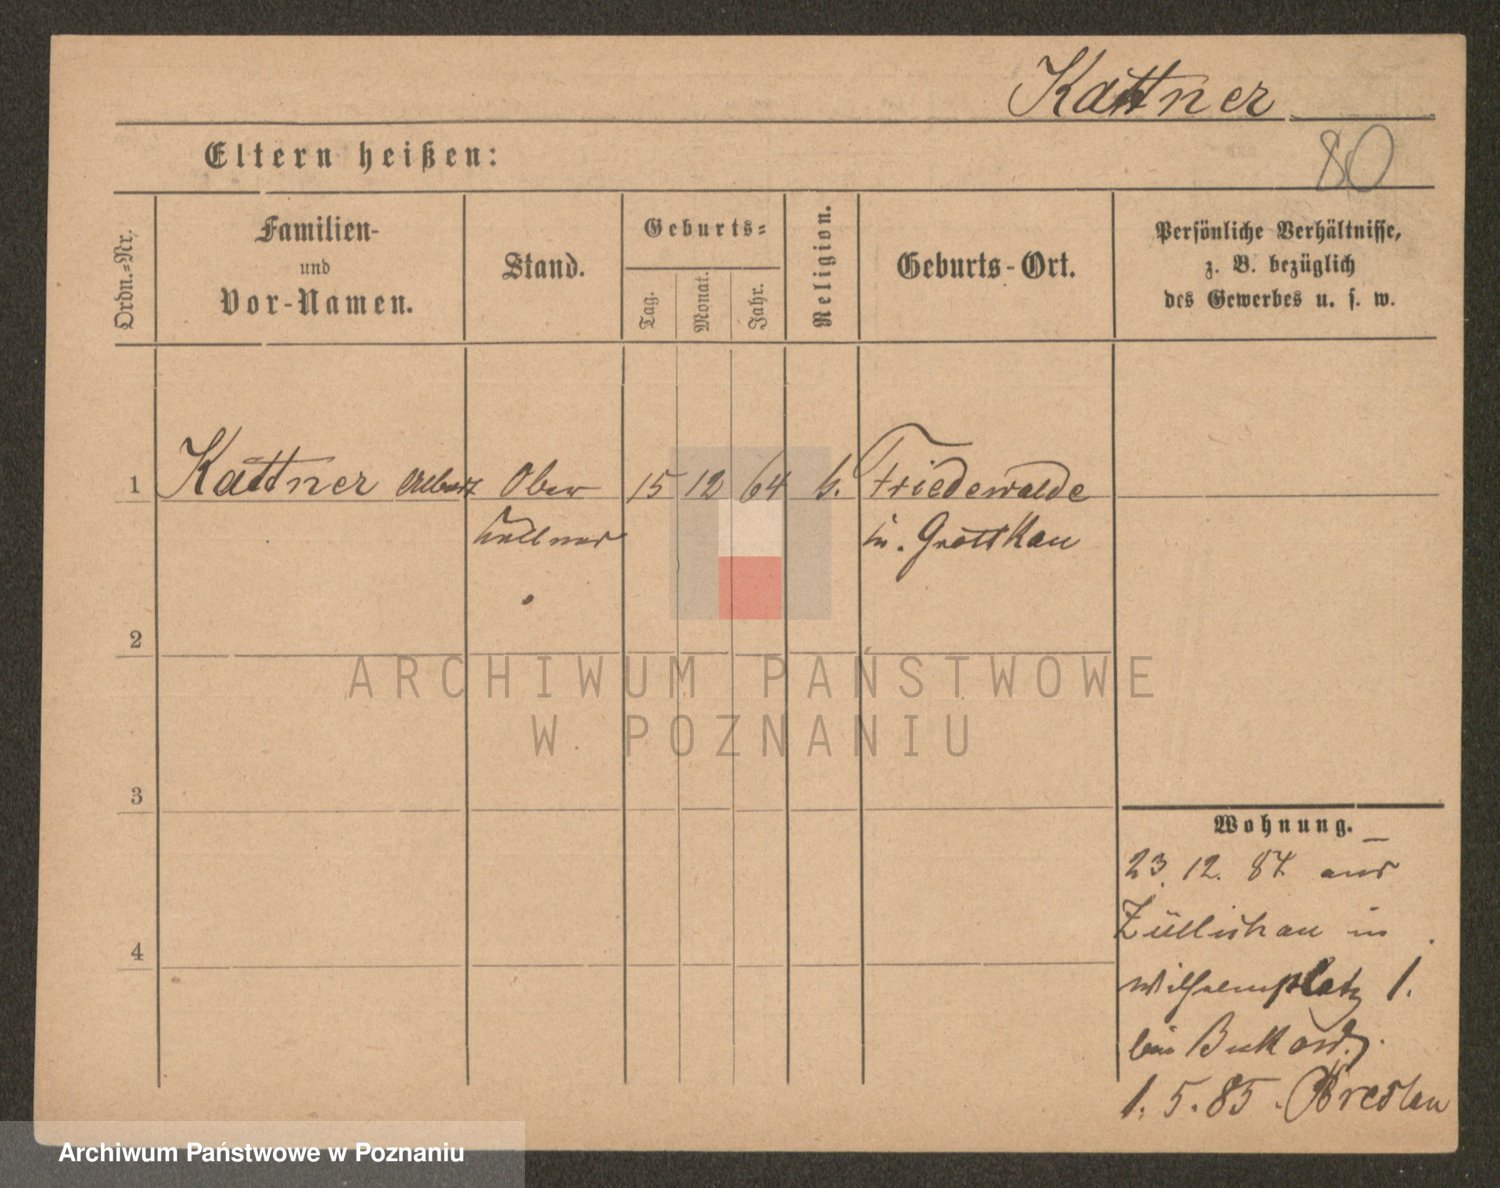 Kattner
80
Eltern heißen:
Ordn.-Nr.
Familien-
und
Vor-Namen.
Stand.
Geburts-
Tag.
Monat.
Jahr.
Religion.
Geburts-Ort.
Persönliche Verhältnisse,
z. B. bezüglich
des Gewerbes u. s. w.
1 Kattner Albert Ober 15 12 64 k. Friedewalde
kellner Kr. Grottkau
2
3
4
Wohnung.
23. 12. 84 aus
Züllichau in
Wilhelmsplatz 1.
bei
1. 5. 85. Breslau
ARCHIWUM PAŃSTWOWE
W POZNANIU
Archiwum Państwowe w Poznaniu